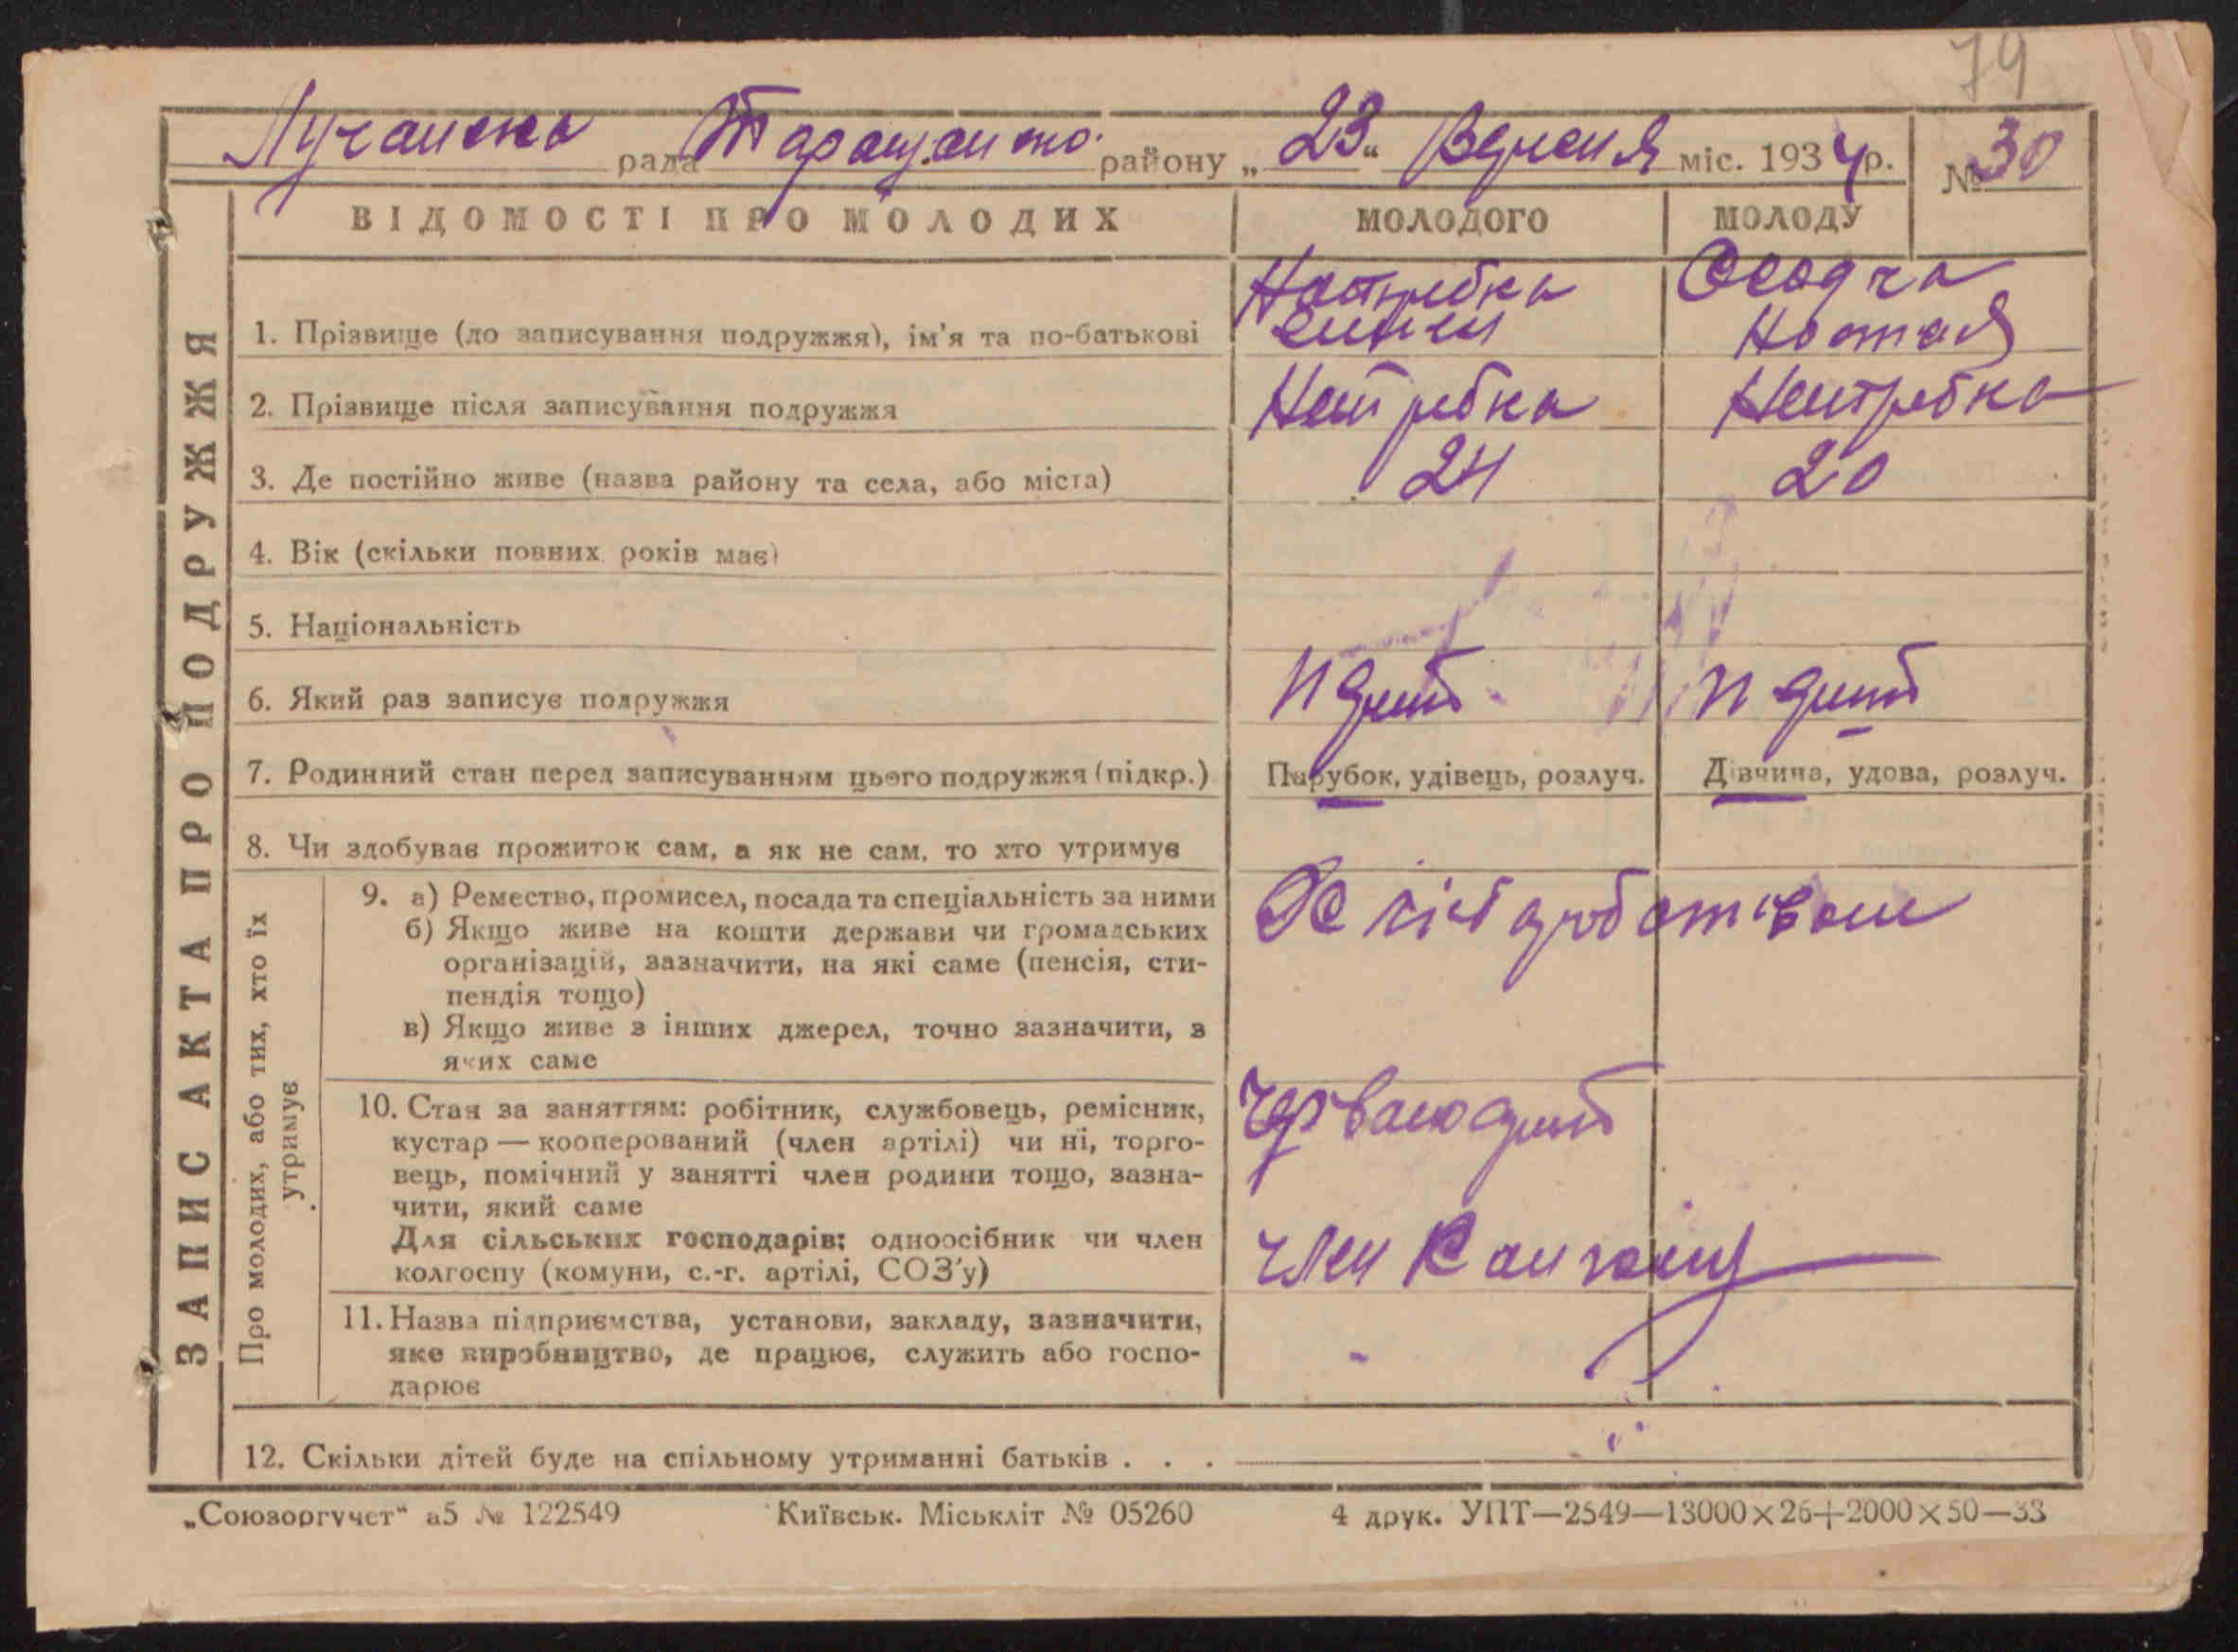 79
Лучанска рада Таращансько. району „23“ Вересня міс. 1934 р. № 30
ЗАПИС АКТА ПРО ПОДРУЖЖЯ
ВІДОМОСТІ ПРО МОЛОДИХ МОЛОДОГО МОЛОДУ
Нетребка Осадча
1. Прізвище (до записування подружжя), ім'я та по-батькові
2. Прізвище після записування подружжя Нетребка Нетребка
3. Де постійно живе (назва району та села, або міста) 24 20
4. Вік (скільки повних років має)
5. Національність
6. Який раз записує подружжя
7. Родинний стан перед записуванням цього подружжя (підкр.) Парубок, удівець, розлуч. Дівчина, удова, розлуч.
8. Чи здобуває прожиток сам, а як не сам, то хто утримує
Про молодих, або тих, хто їх
утримує
9. а) Ремество, промисел, посада та спеціальність за ними
б) Якщо живе на кошти держави чи громадських
організацій, зазначити, на які саме (пенсія, сти-
пендія тощо)
в) Якщо живе з інших джерел, точно зазначити, з
яких саме
10. Стан за заняттям: робітник, службовець, ремісник,
кустар — кооперований (член артілі) чи ні, торго-
вець, помічний у занятті член родини тощо, зазна-
чити, який саме
Для сільських господарів: одноосібник чи член член
колгоспу (комуни, с.-г. артілі, СОЗ'у)
11. Назва підприємства, установи, закладу, зазначити,
яке виробництво, де працює, служить або госпо-
дарює
12. Скільки дітей буде на спільному утриманні батьків . . .
„Союзоргучет“ а5 № 122549 Київськ. Міськліт № 05260 4 друк. УПТ—2549—13000×26+2000×50—33